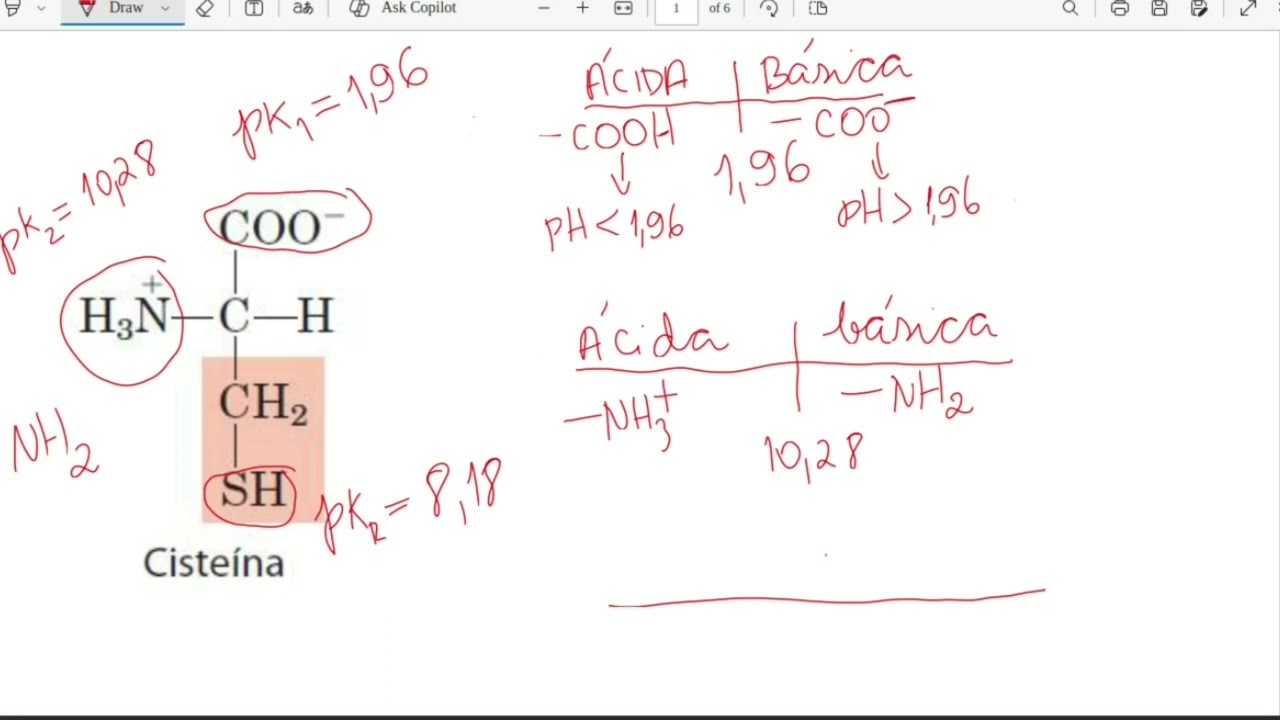 Draw
T
aあ
Ask Copilot
1
of 6
pK₁ = 1,96
pK₂ = 10,28
COO⁻
H₃N⁺—C—H
CH₂
SH
NH₂
pKR = 8,18
Cisteína
ÁCIDA | Básica
–COOH | –COO⁻
1,96
pH < 1,96
pH > 1,96
Ácida | básica
–NH₃⁺ | –NH₂
10,28